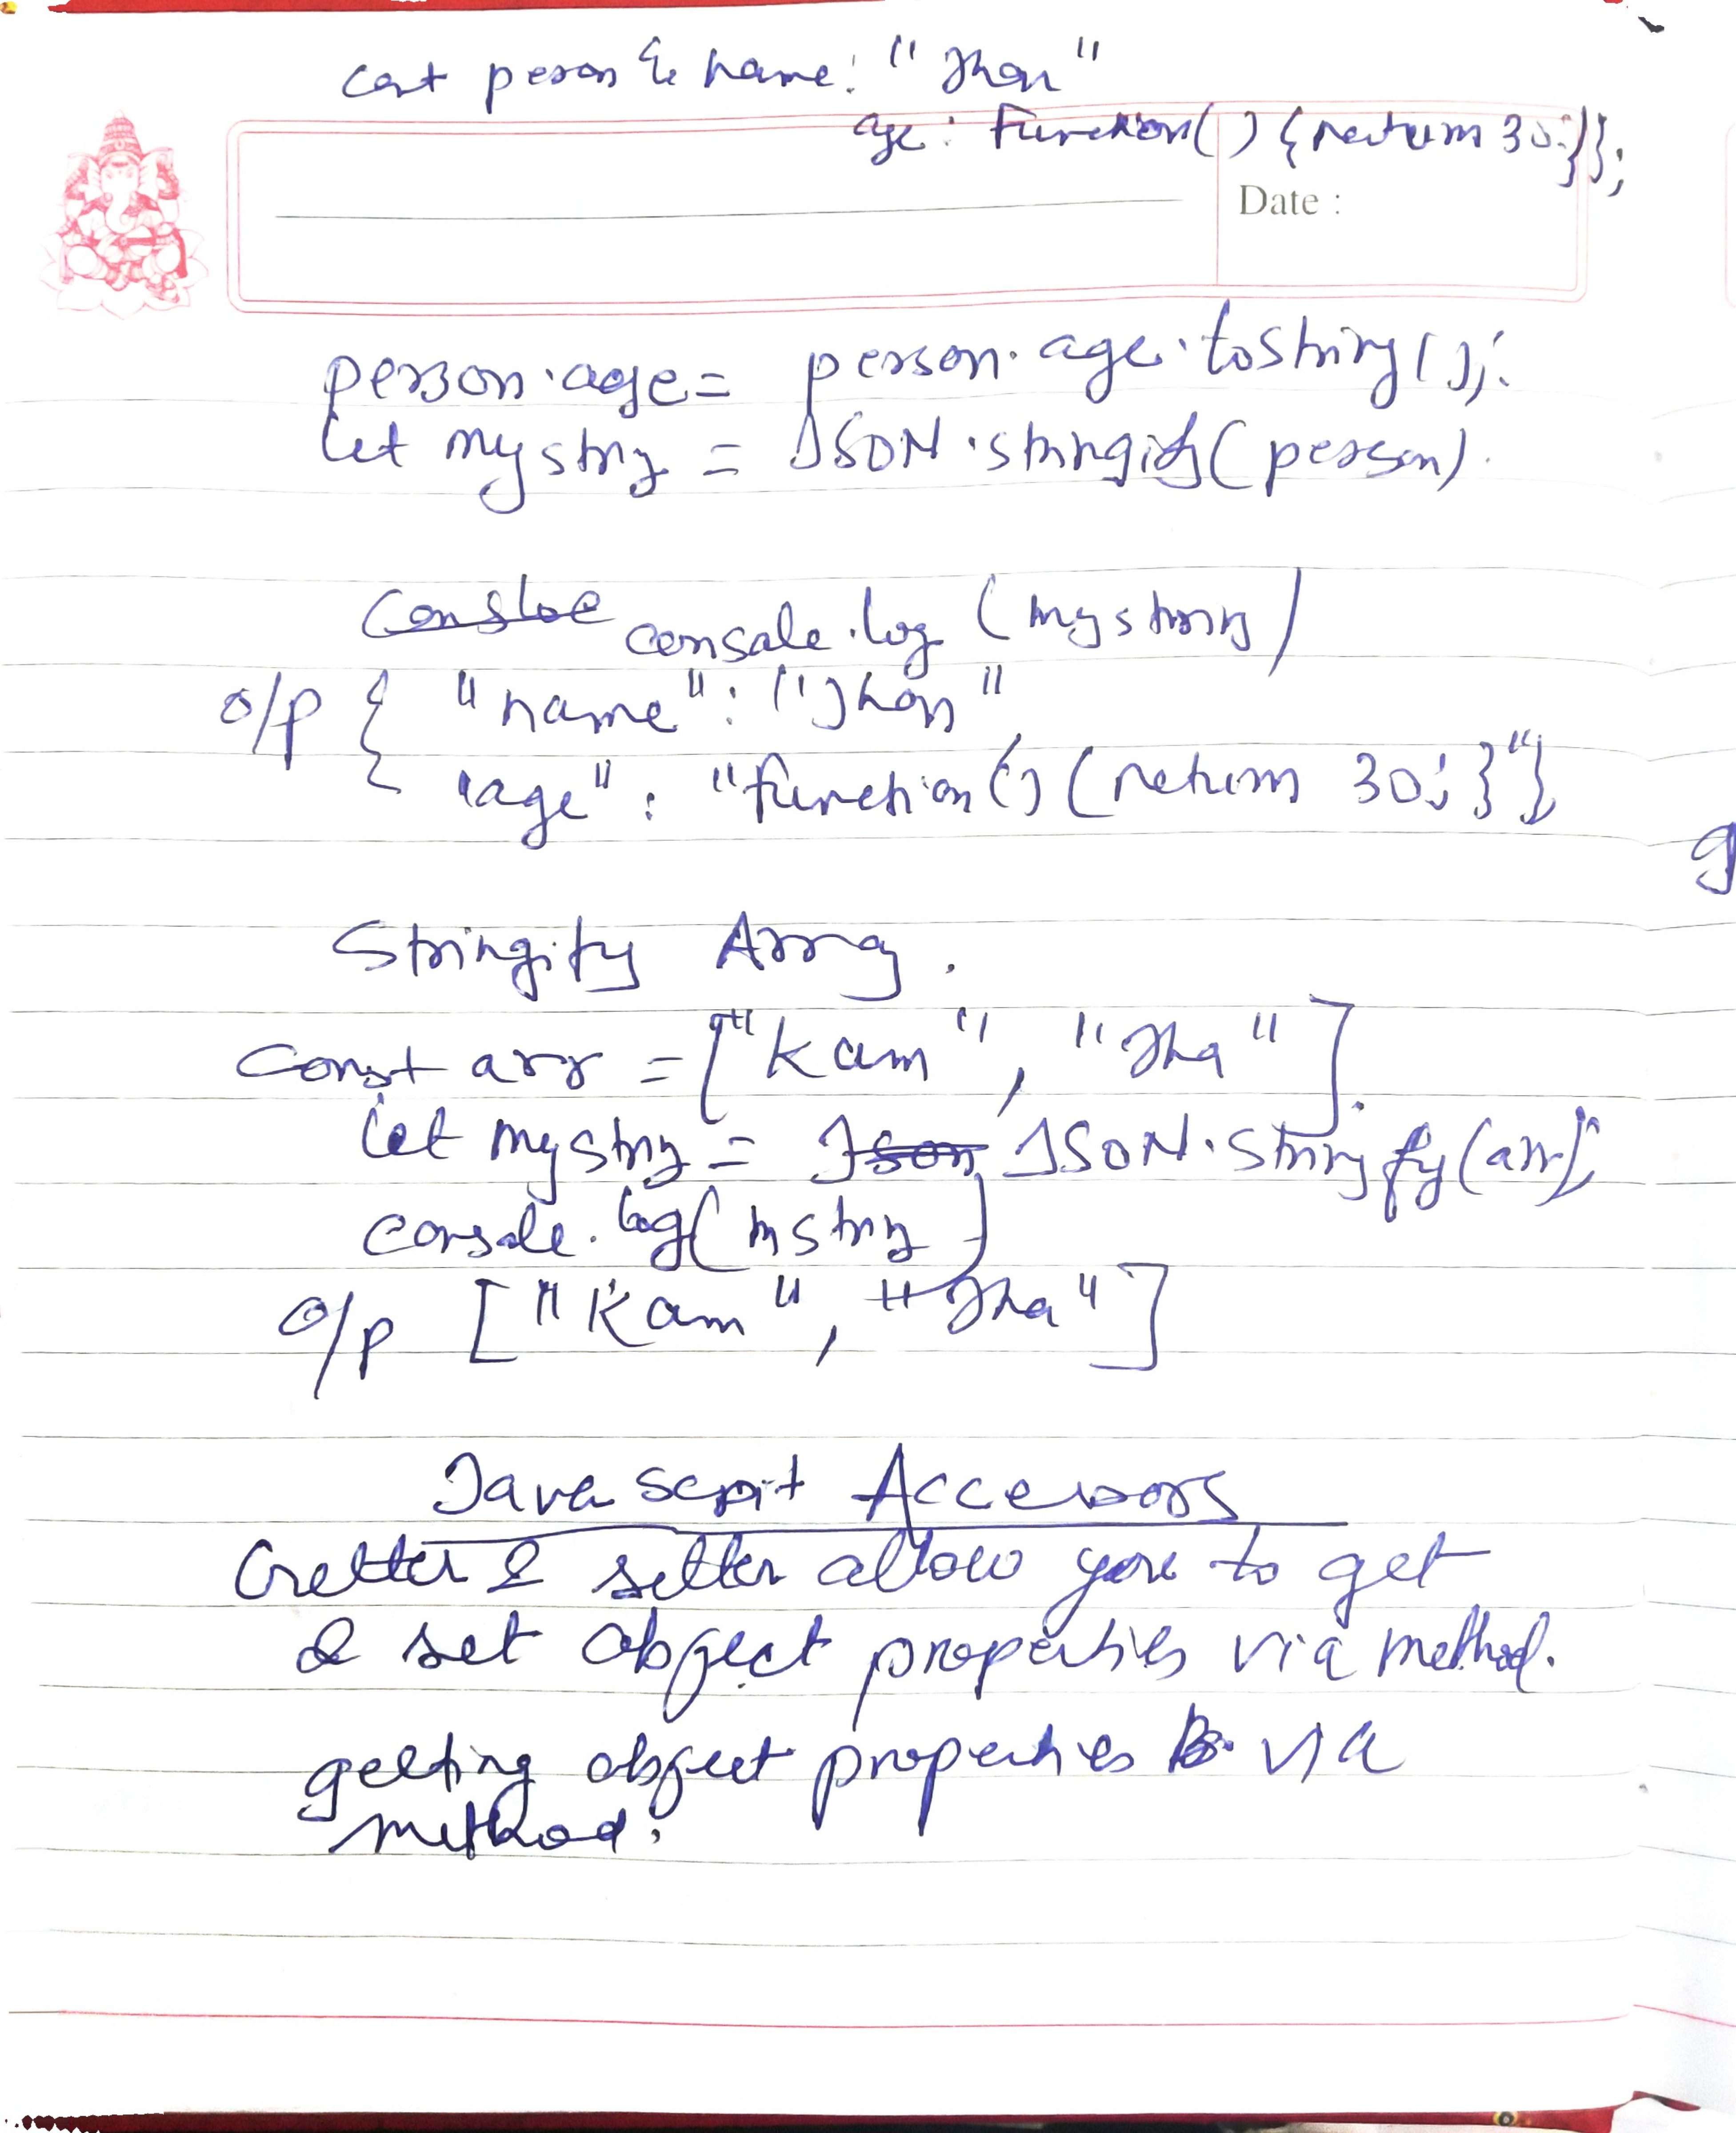 cost person {name: "Jhon"
age: Function() {return 30;}};
Date :
person.age= person.age.toString();
let mystrng = JSON.stringify(person).
Consloe console.log (mystrng)
o/p { "name": "Jhon",
"age": "function() (return 30; }"}
g
Stringify Array.
Const arr = ["Kam", "Jha"].
let mystrng = Json JSON.Stringfy(arr);
console.log( mstrng )
o/p ["Kam", "Jha"]
Java scpit Accessors
Getter & setter allow you to get
& set object properties via method.
getting object properties via
method.